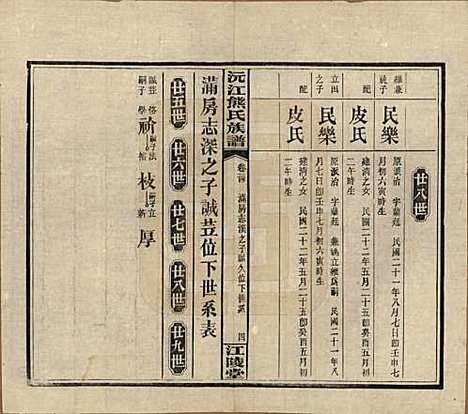 廿八世
民樂
原派治 字蘭蓀 民國二十一年八月七日卽壬申七
月初六寅時生
配
皮氏
建清之女 民國二十二年五月二十五卽癸酉五月
二午時生
立田
之子
民樂
原派治 字蘭蓀 兼祧立維爲嗣 民國二十一年八
月七日卽壬申七月初六寅時生
配
皮氏
建清之女 民國二十二年五月二十五卽癸酉五月
二午時生
沅江熊氏族譜
卷二者
滿房志深之子誠
位下世系
四
江陵堂
滿房志深之子誠荳位下世系表
廿五世
廿六世
廿七世
廿八世
廿九世
誠荳
嗣子
學
祈
嗣子法
枝
嗣子立
新
厚